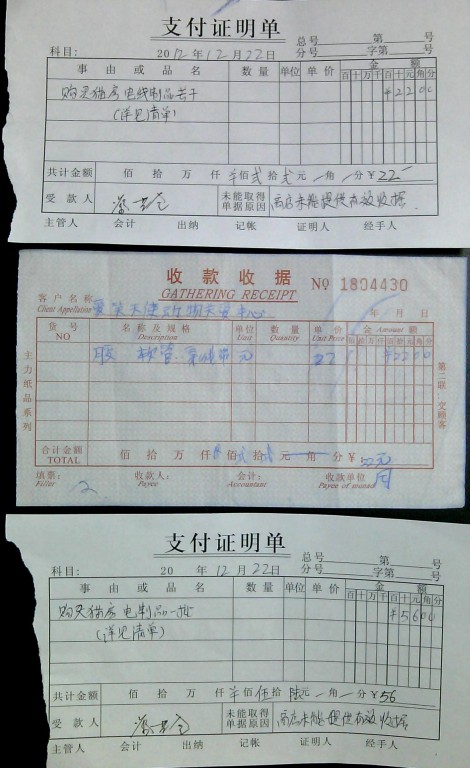 支付证明单
总号 第 号
科目: 2012年12月22日 分号 字第 号
事由或品名 数量 单位 单价 金额
百十万千百十元角分
购买猫房电线制品若干 ¥2200
(详见清单)
共计金额 佰 拾 万 仟 佰 贰 拾 贰 元 角 分 ¥ 22
受款人 未能取得单据原因 商店未能提供有效收据.
主管人 会计 出纳 记帐 证明人 经手人
收款收据 No 1804430
GATHERING RECEIPT
客户名称 天使动物 中心
Client Appellation 年 月 日
货号 名称及规格 单位 数量 单价 金额 Amount
NO Description Unit Quantity Unit Price 佰拾万仟佰拾元角分
软管 22 ¥2200
主力纸品系列
第二联:交顾客
合计金额 佰 拾 万 仟 佰 贰 拾 元 角 分 ¥ 22元
TOTAL
填票: 收款人: 会计: 收款单位
Filler Payee Accountant Payee of monad
支付证明单
总号 第 号
科目: 20 年12月22日 分号 字第 号
事由或品名 数量 单位 单价 金额
百十万千百十元角分
购买猫房电制品一批 ¥5600
(详见清单)
共计金额 佰 拾 万 仟 佰 伍 拾 陆 元 角 分 ¥ 56
受款人 未能取得单据原因 商店未能提供有效收据
主管人 会计 出纳 记帐 证明人 经手人